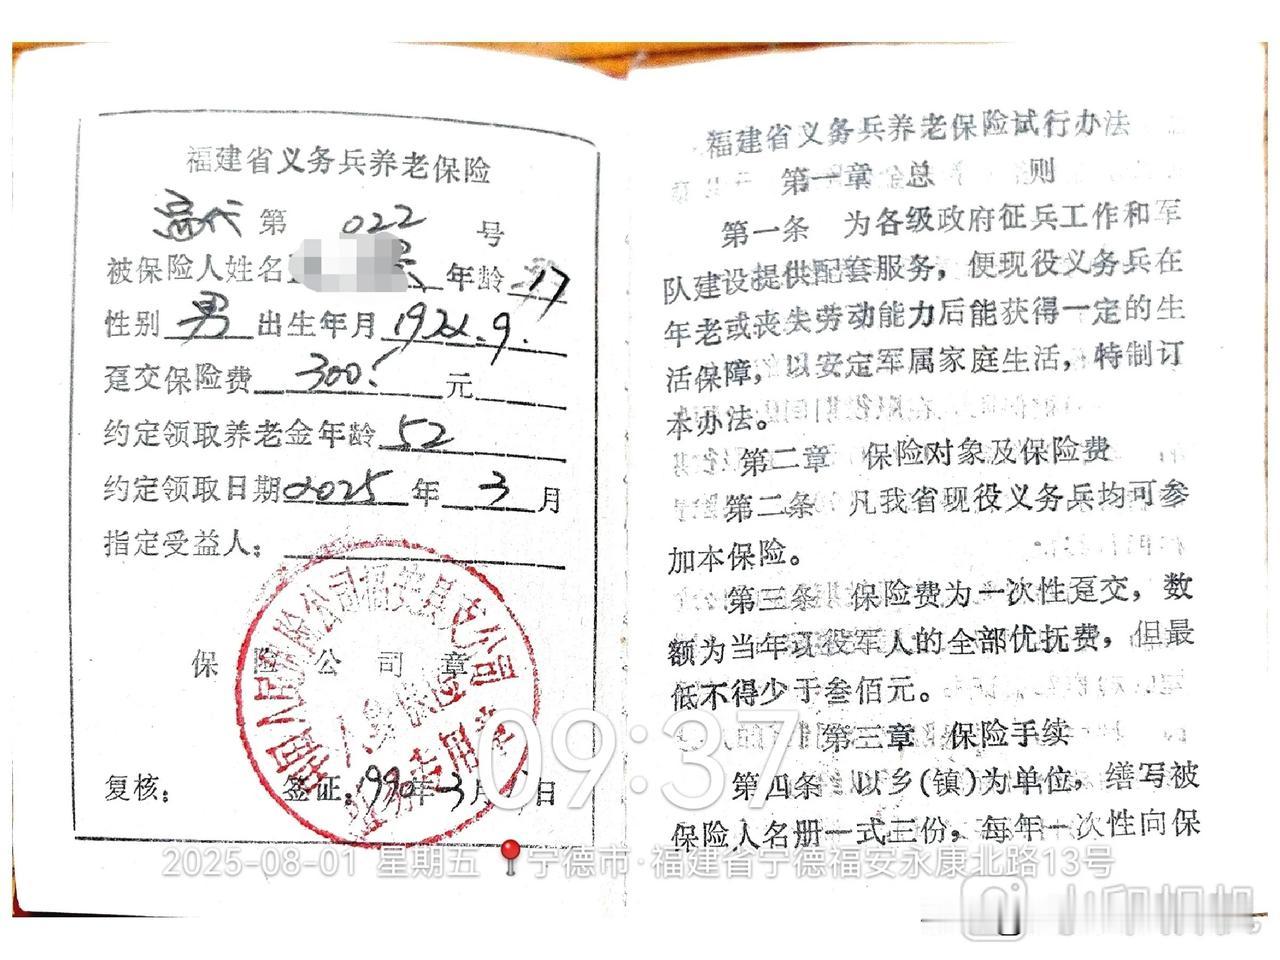 福建省义务兵养老保险
第 022 号
被保险人姓名 年龄 17
性别 男 出生年月 9.
趸交保险费 300 元
约定领取养老金年龄 52
约定领取日期 2025 年 3 月
指定受益人:
保险公司章
复核: 签证: 1990年3月 日
福建省义务兵养老保险试行办法
第一章 总 则
第一条 为各级政府征兵工作和军
队建设提供配套服务,便现役义务兵在
年老或丧失劳动能力后能获得一定的生
活保障,以安定军属家庭生活,特制订
本办法。
第二章 保险对象及保险费
第二条 凡我省现役义务兵均可参
加本保险。
第三条 保险费为一次性趸交,数
额为当年现役军人的全部优抚费,但最
低不得少于叁佰元。
第三章 保险手续
第四条 以乡(镇)为单位,缮写被
保险人名册一式三份,每年一次性向保
09:37
2025-08-01 星期五 宁德市·福建省宁德福安永康北路13号